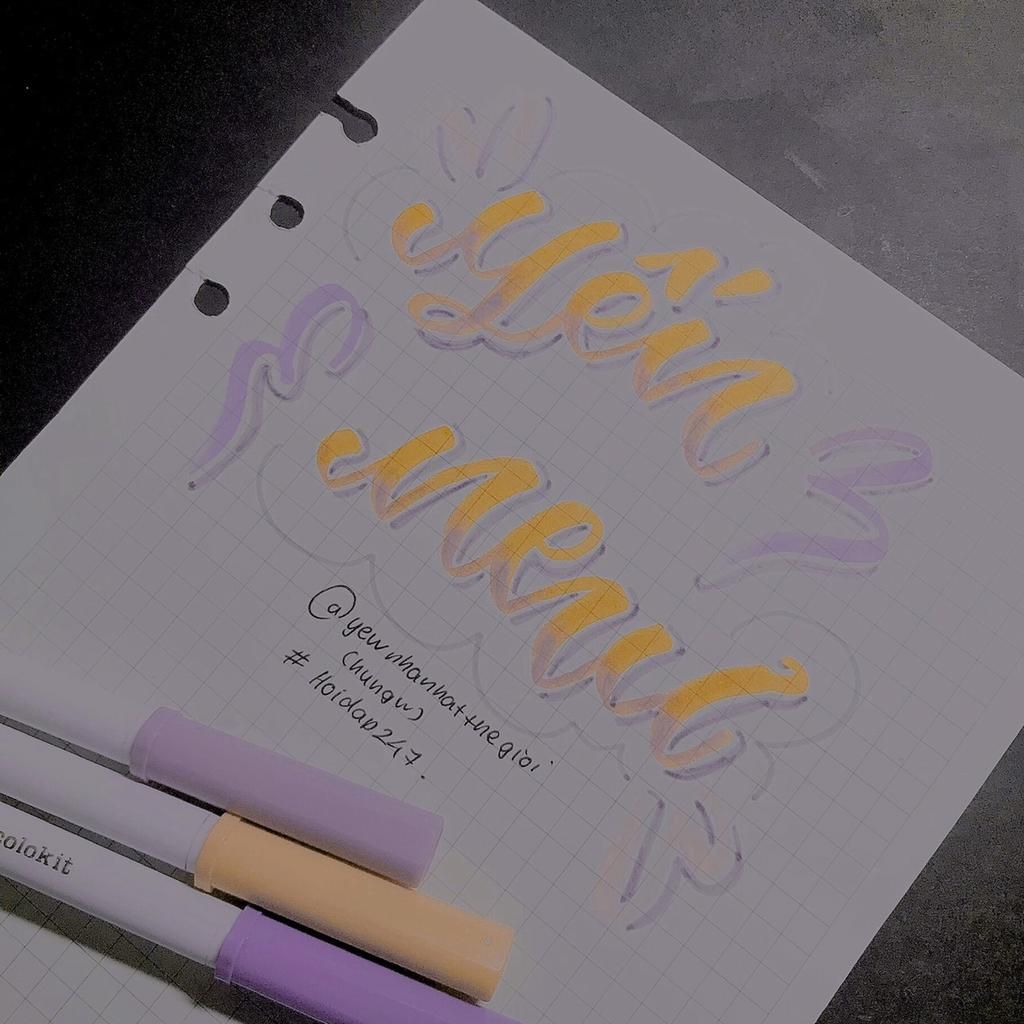 Yến
@yewnhanhatthegioi
(Chungw)
# Hoidap247.
colokit